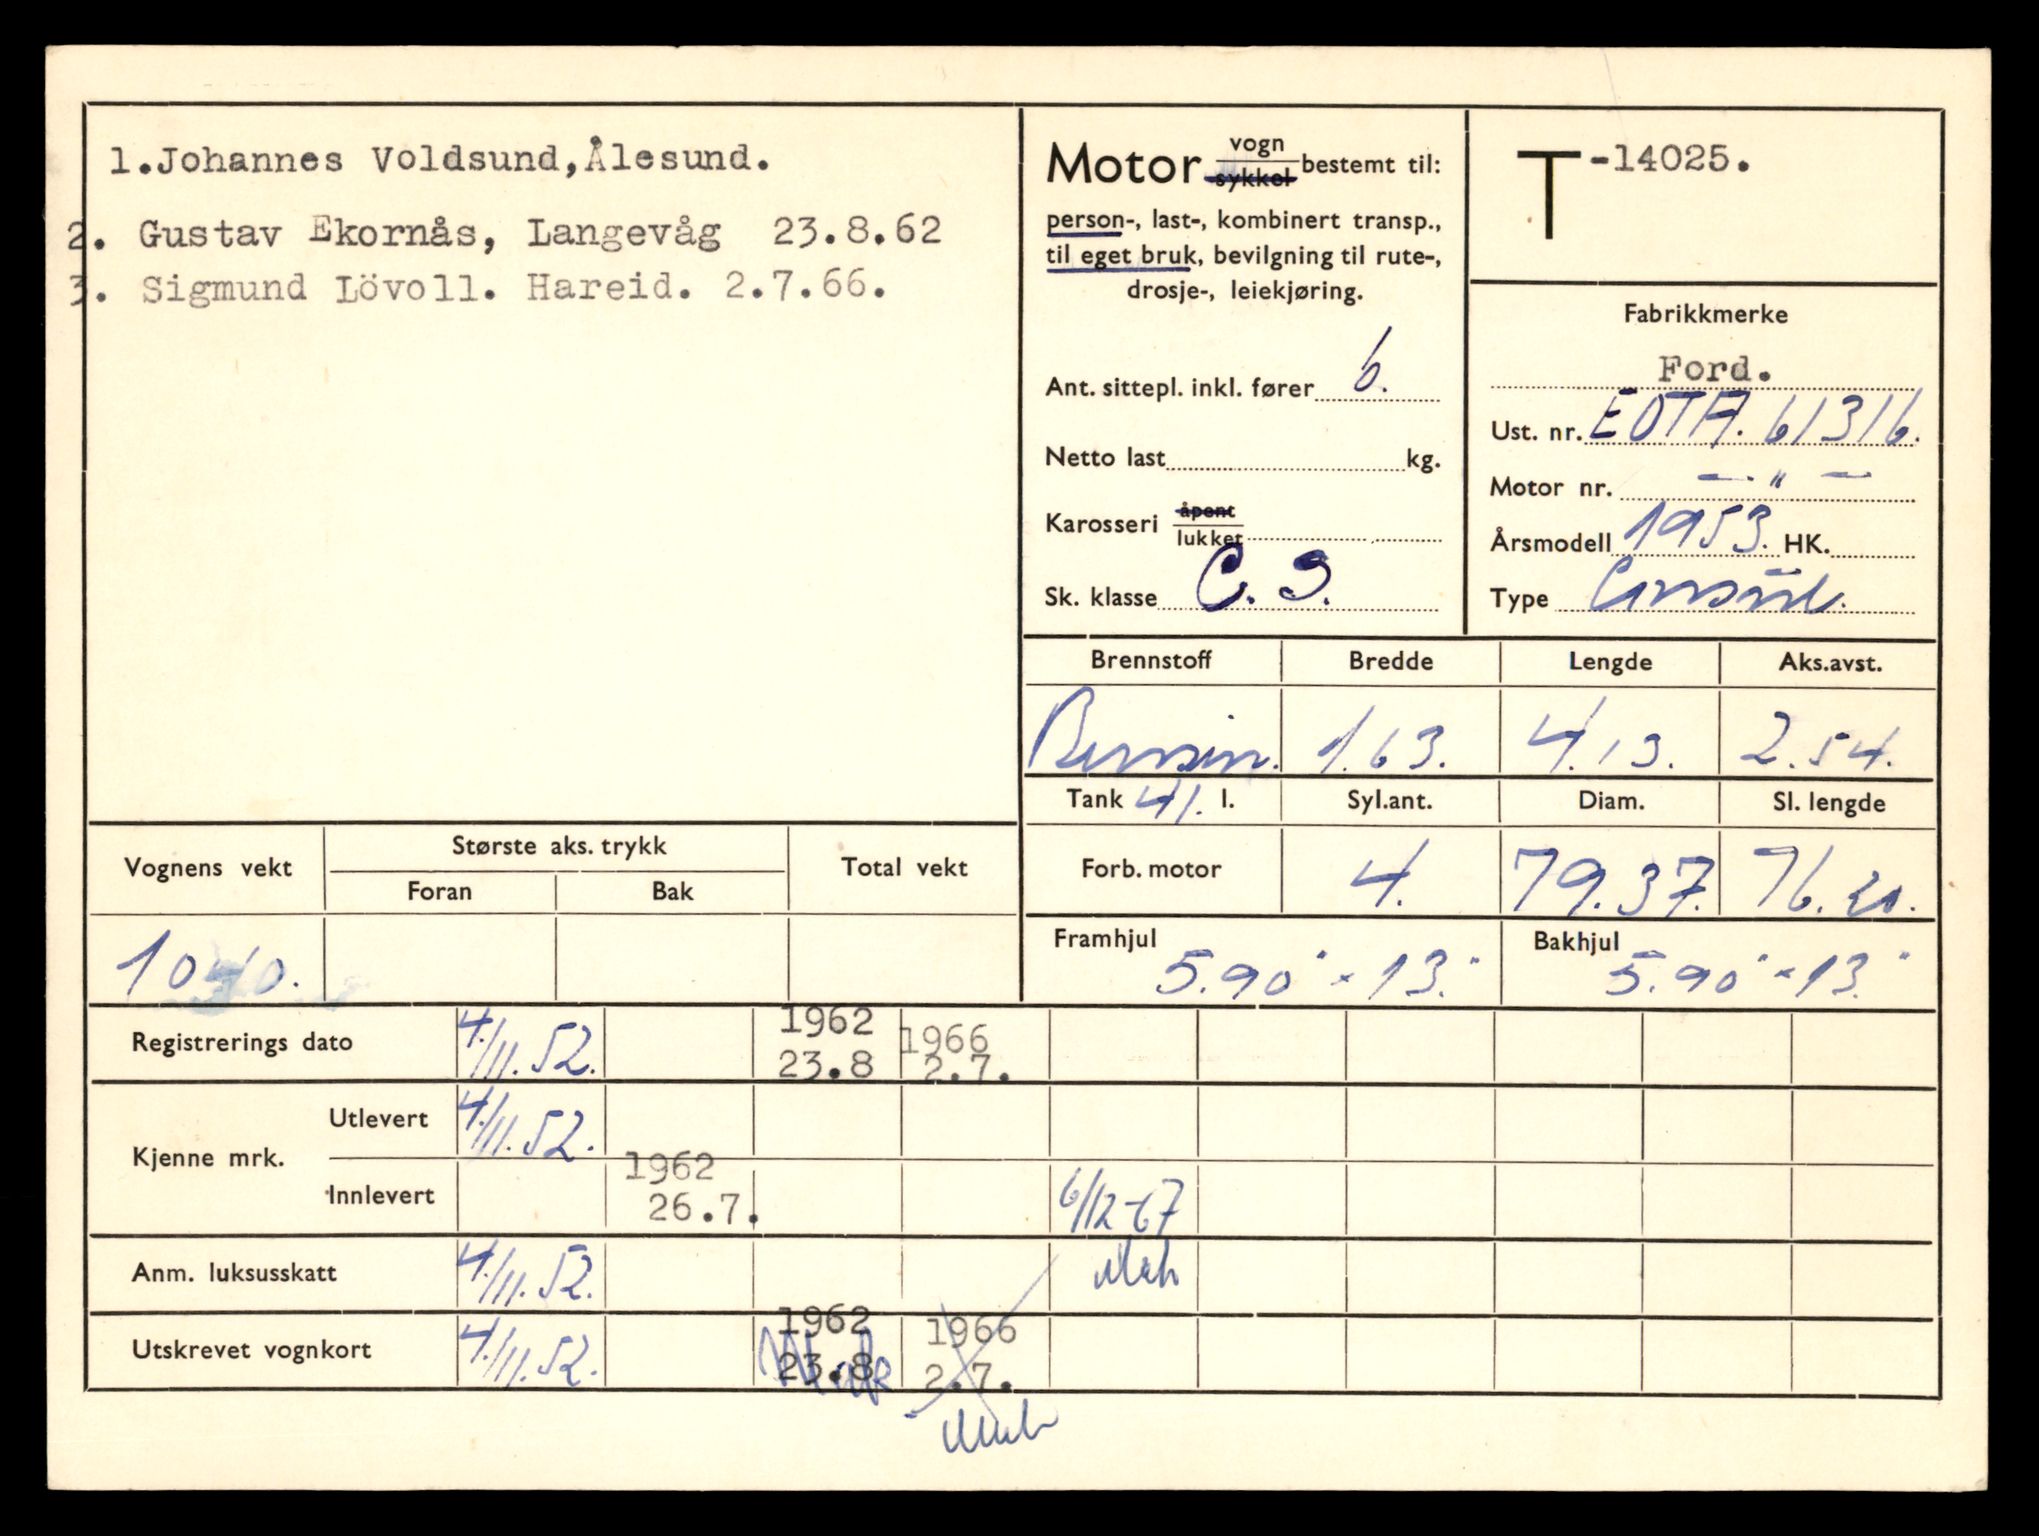 1.Johannes Voldsund,Ålesund.
2. Gustav Ekornås, Langevåg 23.8.62
3. Sigmund Lövoll. Hareid. 2.7.66.
Motor vogn sykkel bestemt til:
person-, last-, kombinert transp.,
til eget bruk, bevilgning til rute-,
drosje-, leiekjøring.
Ant. sittepl. inkl. fører 6.
Netto last kg.
Karosseri åpent lukket
Sk. klasse C. 3.
T-14025.
Fabrikkmerke
Ford.
Ust. nr. EOTA. 61316.
Motor nr. — " —
Årsmodell 1953. HK.
Type Consul.
Brennstoff Bredde Lengde Aks.avst.
Bensin. 1.63. 4.13. 2.54.
Tank 41. l. Syl.ant. Diam. Sl. lengde
Forb. motor 4. 79.37. 76.20.
Framhjul 5.90" × 13." Bakhjul 5.90" × 13."
Vognens vekt Største aks. trykk Total vekt
Foran Bak
1040.
Registrerings dato 4./11. 52. 1962 23.8 1966 2.7.
Kjenne mrk. Utlevert 4./11. 52.
Innlevert 1962 26.7. 6/12-67
Anm. luksusskatt 4./11. 52.
Utskrevet vognkort 4./11. 52. 1962 23.8 1966 2.7.